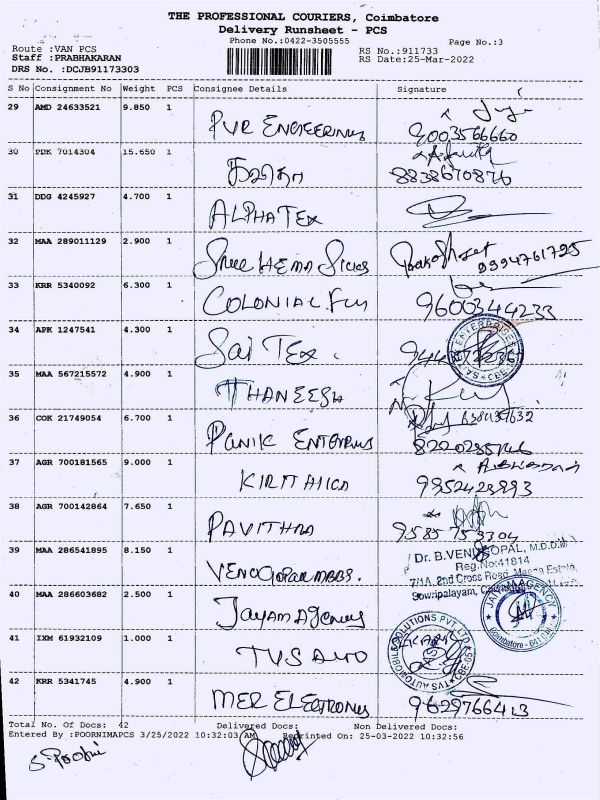 THE PROFESSIONAL COURIERS, Coimbatore
Delivery Runsheet - PCS
Phone No.:0422-3505555
Page No.:3
Route :VAN PCS
RS No.:911733
Staff :PRABHAKARAN
RS Date:25-Mar-2022
DRS No. :DCJB91173303
S No Consignment No Weight PCS Consignee Details Signature
29 AMD 24633521 9.850 1
PVR ENGINEERING 9003566660
30 PDK 7014304 15.650 1
8838670876
31 DDG 4245927 4.700 1
ALPHA TEX
32 MAA 289011129 2.900 1
SREE HEMA SILKS 9994761725
33 KRR 5340092 6.300 1
COLONIAL 9600344233
34 APK 1247541 4.300 1
SAI TEX.
ENTERPRISE CBE
35 MAA 567215572 4.900 1
THANEESH
36 COK 21749054 6.700 1
37 AGR 700181565 9.000 1
9952423993
38 AGR 700142864 7.650 1
PAVITHRA
39 MAA 286541895 8.150 1
VENUGOPAL MBBS.
Dr. B.VENUGOPAL, M.D.D.M
Reg.No:41814
7/1A, 2nd Cross Road,
Sowripalayam,
40 MAA 286603682 2.500 1
JAYAM Agency
JAYAM AGENCY
Coimbatore
41 IXM 61932109 1.000 1
TVS AUTO
TVS AUTOMOBILE SOLUTIONS PVT. LTD.
42 KRR 5341745 4.900 1
MER ELECTRONICS 9629766413
Total No. Of Docs: 42 Delivered Docs: Non Delivered Docs:
Entered By :POORNIMAPCS 3/25/2022 10:32:03 AM Reprinted On: 25-03-2022 10:32:56